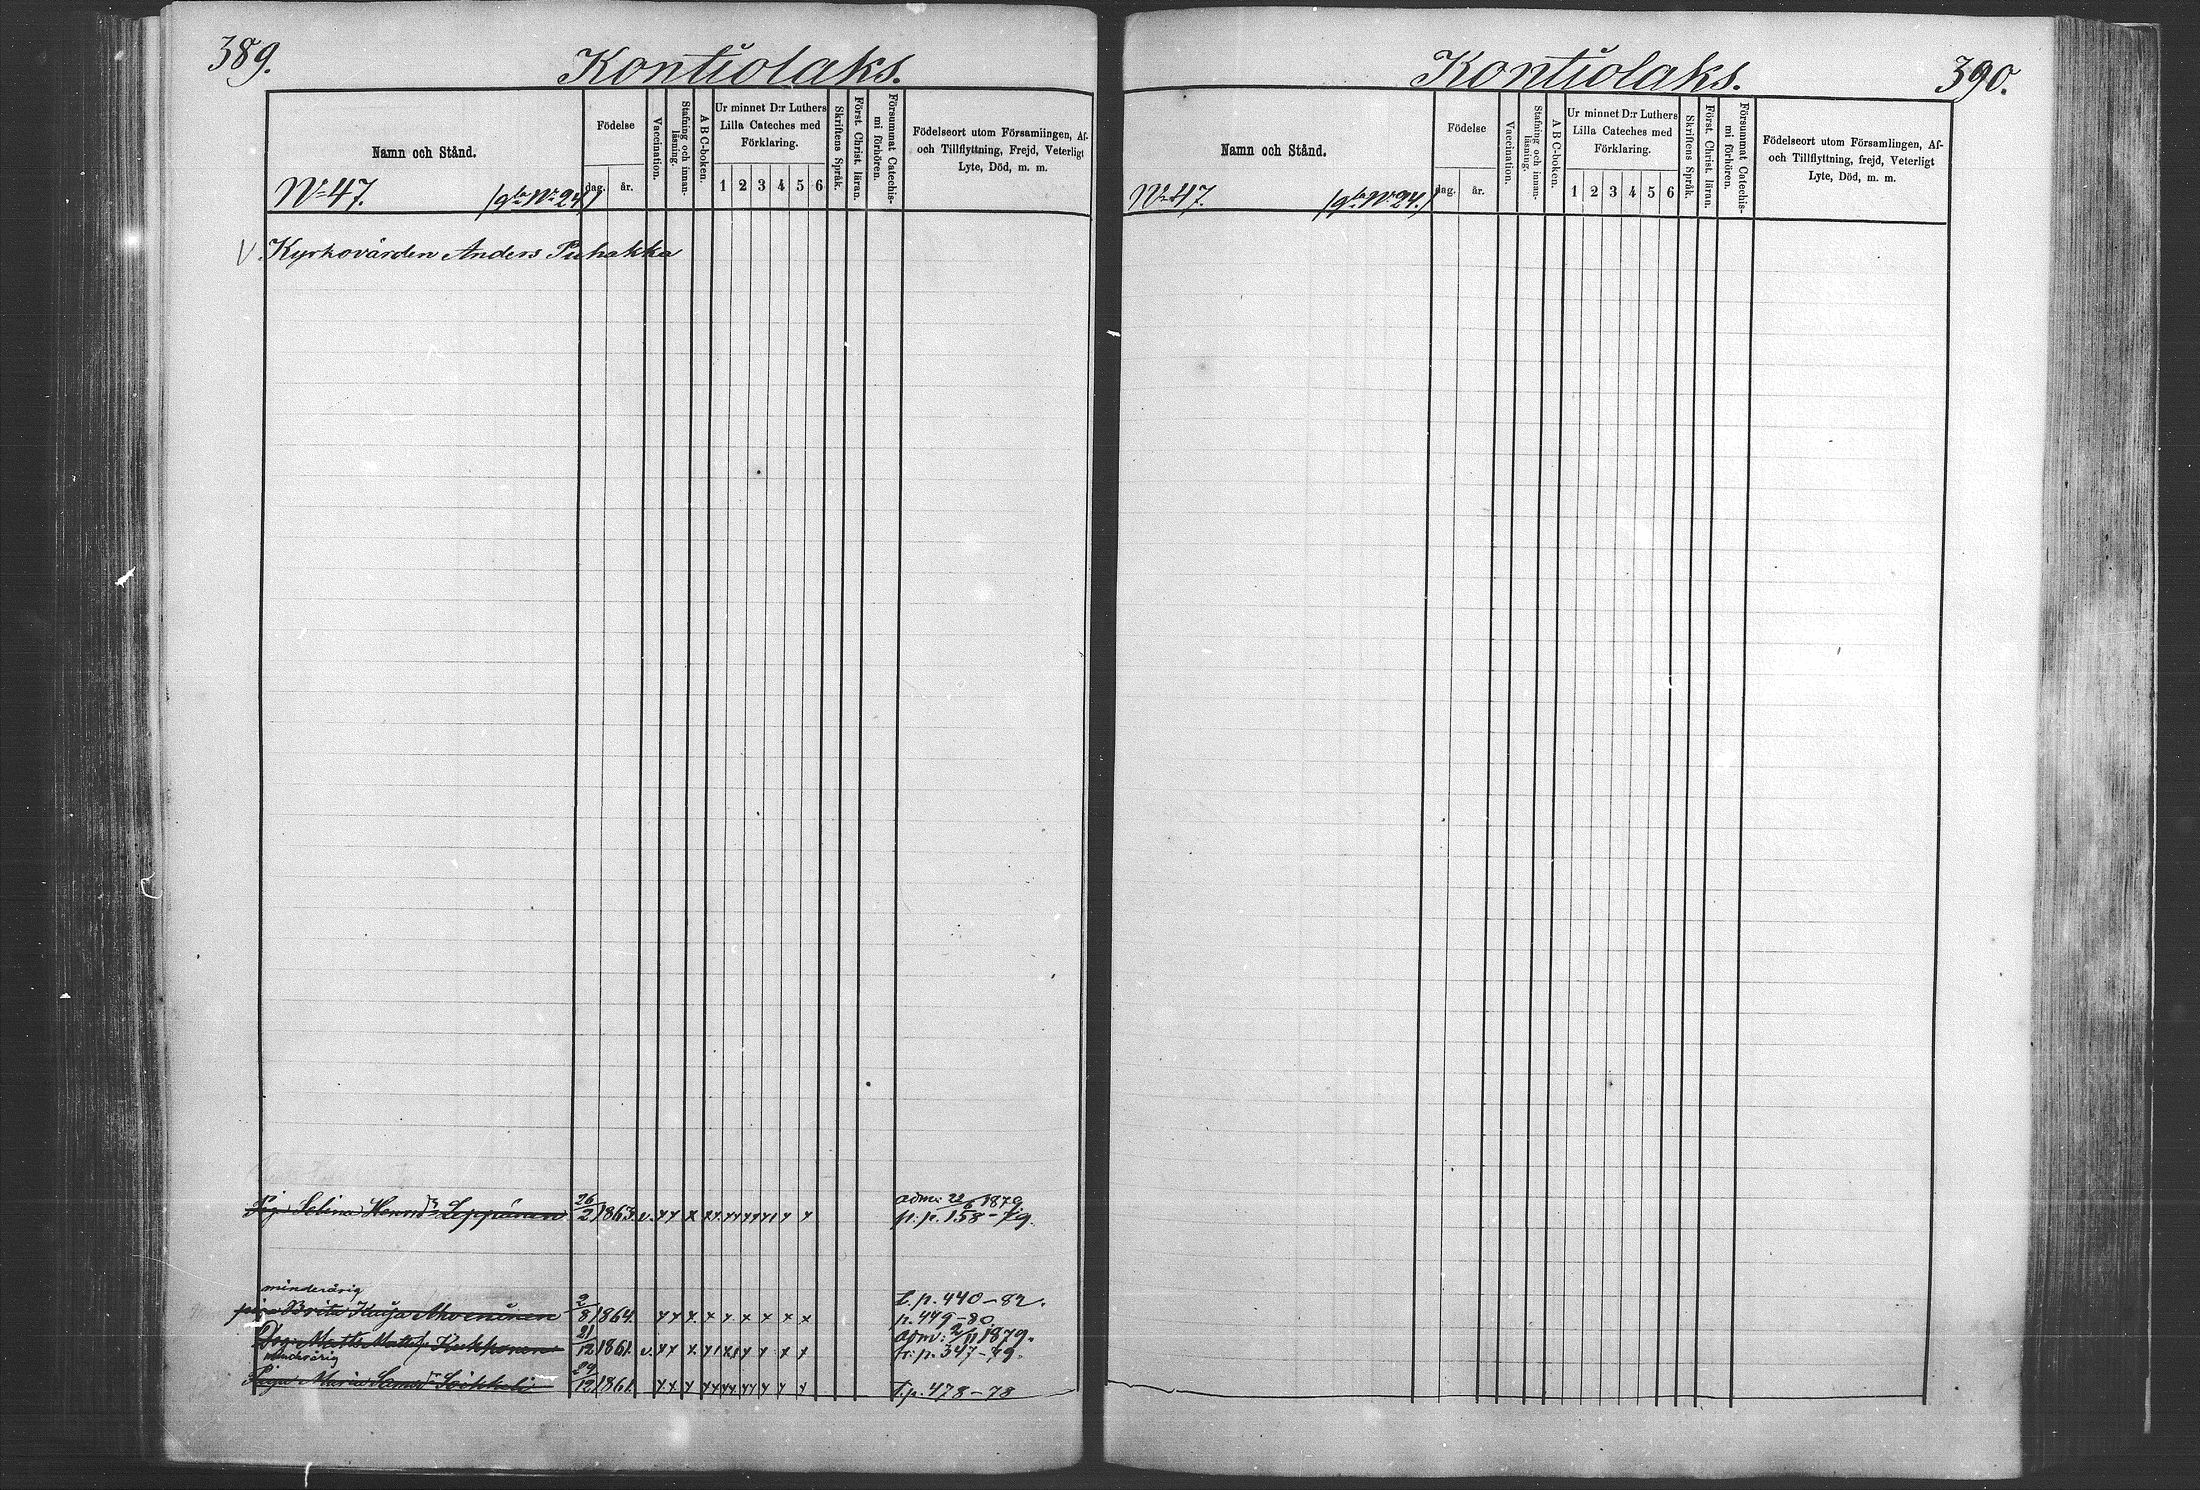 389.
Kontiolaks.
Namn och Stånd.
No 47.
Födelse
dag.
år.
Vaccination.
Stafning och innan-
läsning.
A B C-boken.
Ur minnet D:r Luthers
Lilla Cateches med
Förklaring.
1 2 3 4 5 6
Skriftens Språk.
Först. Christ. läran.
Försummat Catechis-
mi förhören.
Födelseort utom Församlingen, Af-
och Tillflyttning, Frejd, Veterligt
Lyte, Död, m. m.
V Kyrkovärden Anders Puhakka
adm: 22/6 1879.
Selina Henrsdr Leppänen 26/2 1863. v.
p. 158-79.
minderårig
piga Brita Kaija Ahvoninen 2/8 1864.
t. p. 440-82.
p. 449-80.
Drg: Matts Mattsf Kukkonen 21/12 1861. v.
adm: 2/11 1879.
fr: p. 347-79.
minderårig
Piga Maria Samsdr Soikkeli 29/12 1861.
t. p. 478-78
Kontiolaks.
390.
Namn och Stånd.
No 47.
Födelse
dag.
år.
Vaccination.
Stafning och innan-
läsning.
A B C-boken.
Ur minnet D:r Luthers
Lilla Cateches med
Förklaring.
1 2 3 4 5 6
Skriftens Språk.
Först. Christ. läran.
Försummat Catechis-
mi förhören.
Födelseort utom Församlingen, Af-
och Tillflyttning, frejd, Veterligt
Lyte, Död, m. m.